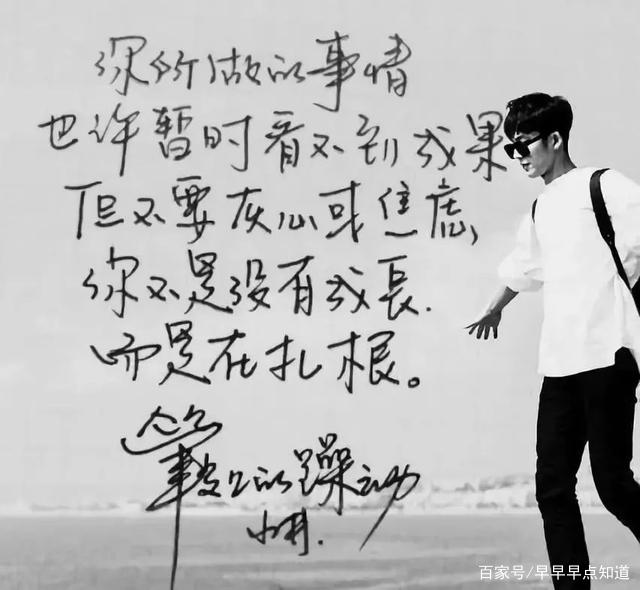 你所做的事情
也许暂时看不到成果
但不要灰心或焦虑,
你不是没有成长.
而是在扎根。
的躁动
百家号/早早早点知道